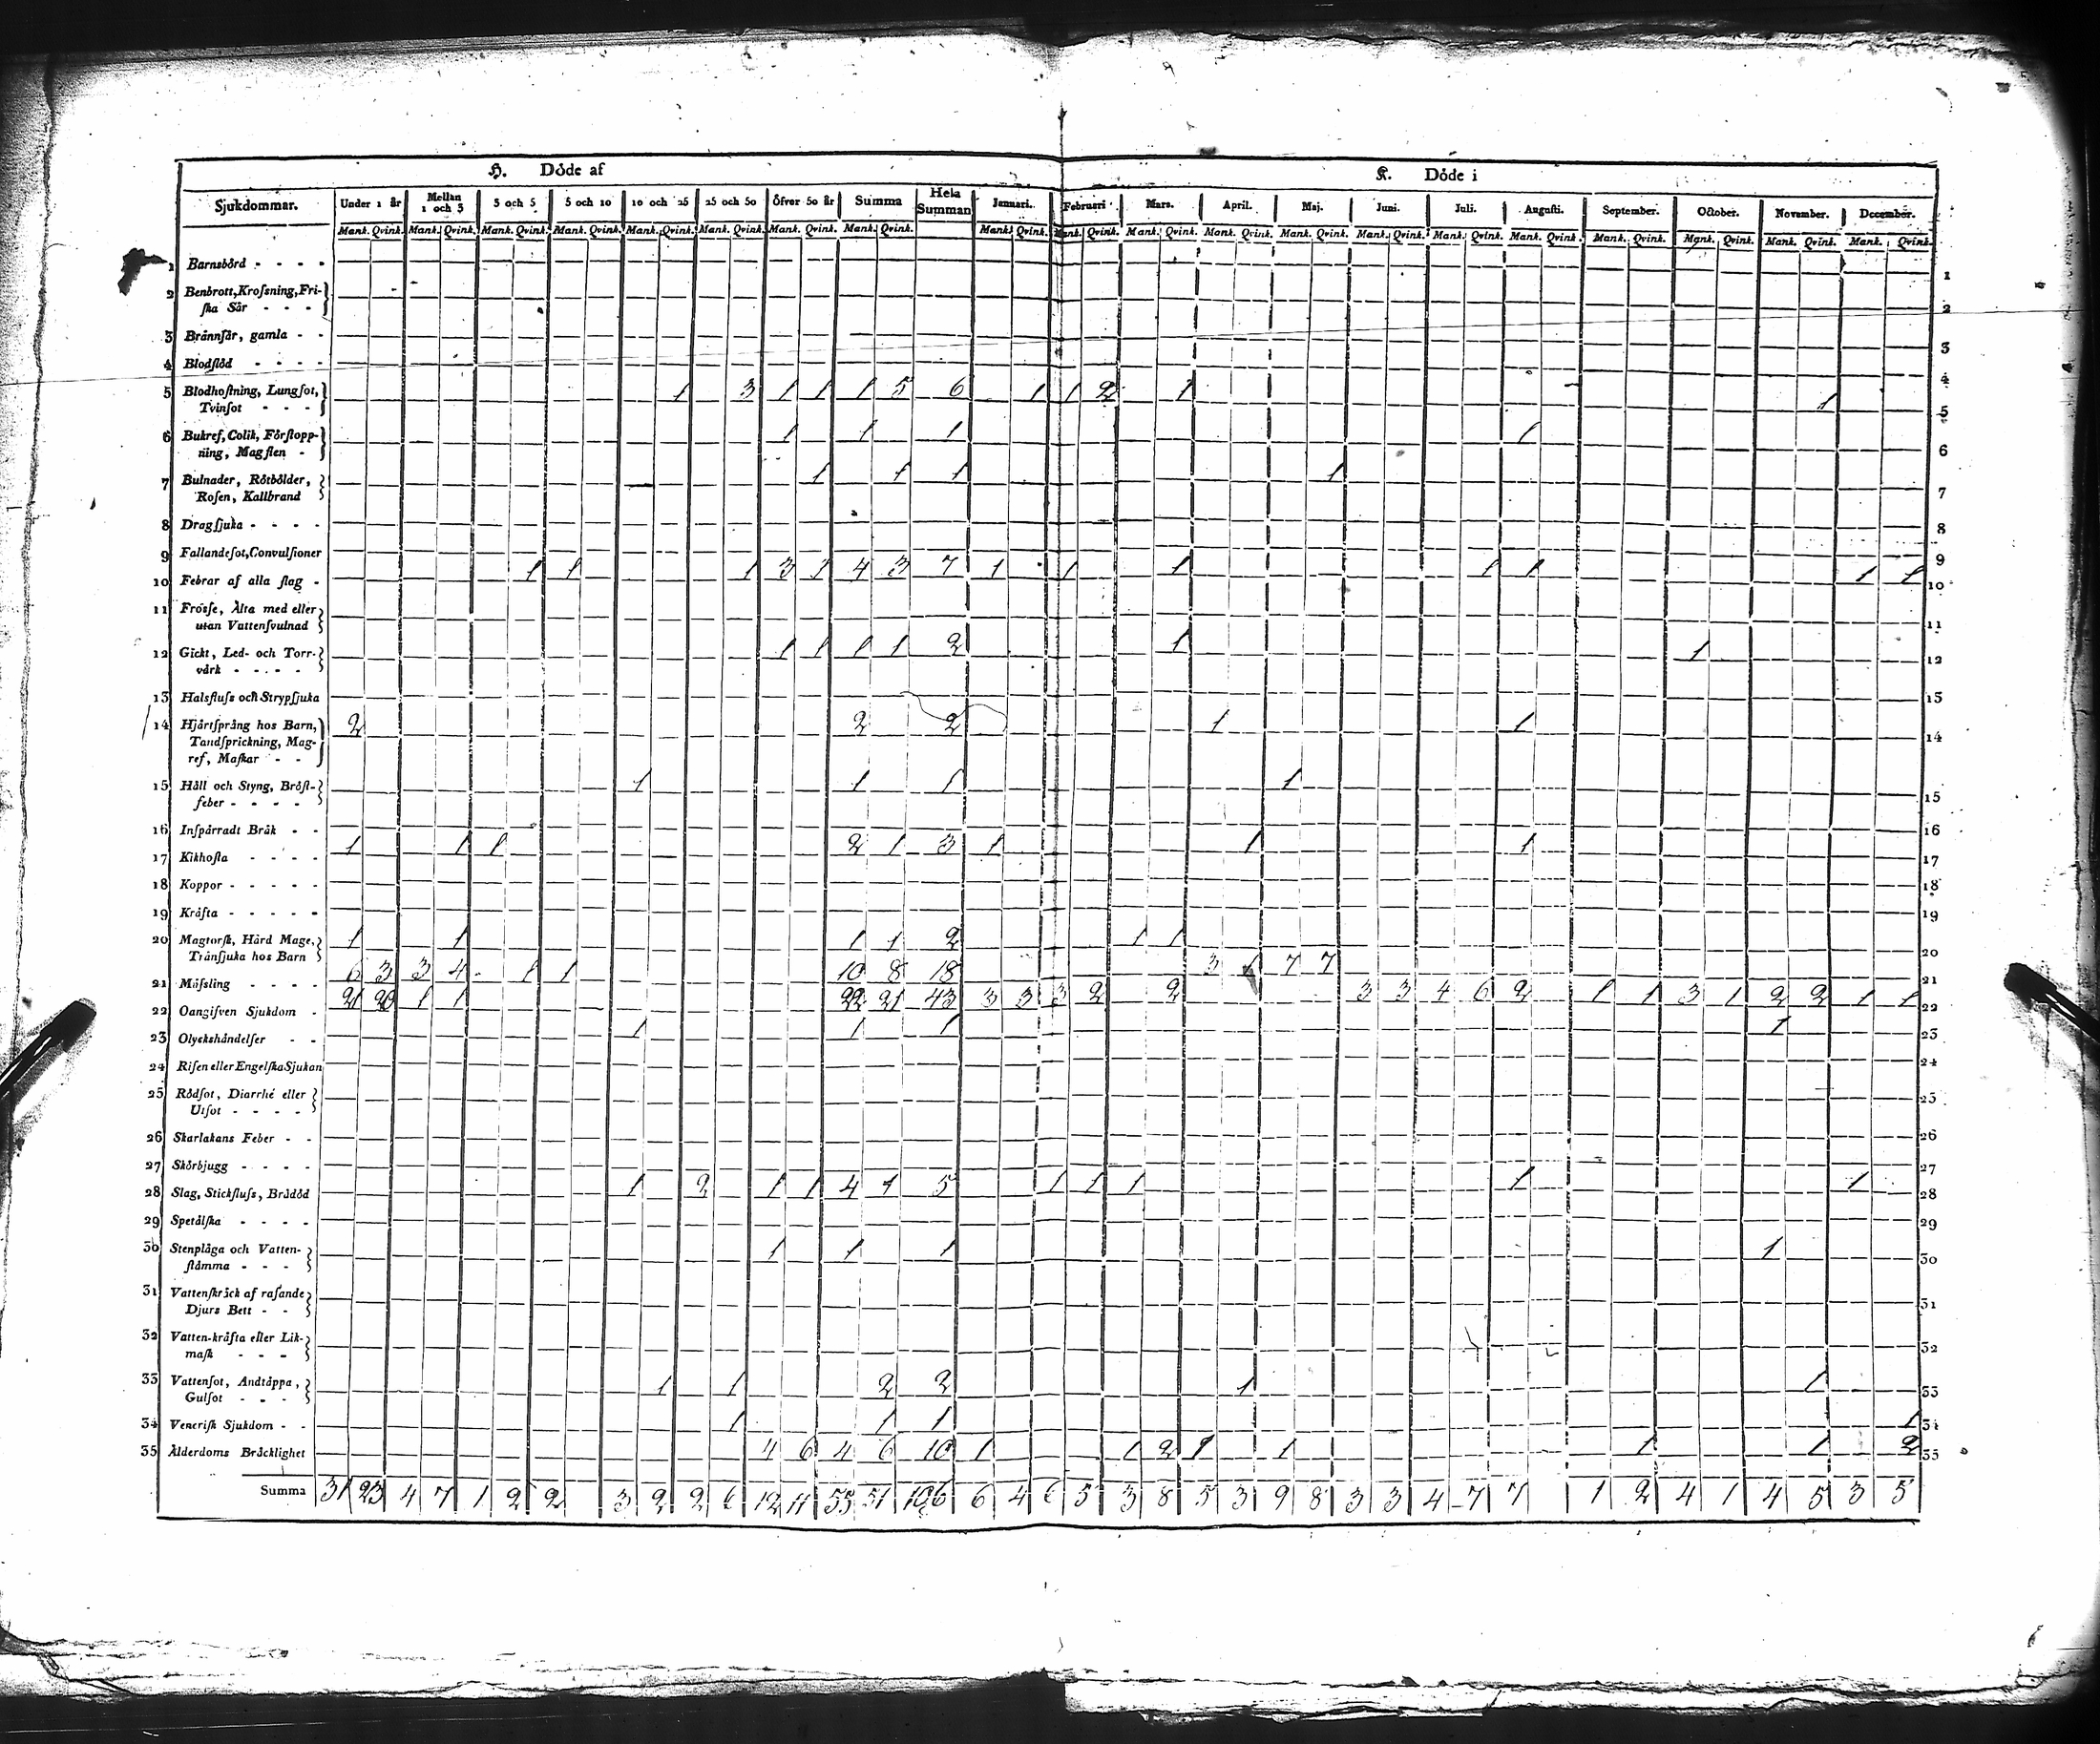 H. Döde af
K. Döde i
Sjukdommar. Under 1 år Mellan 1 och 3 3 och 5 5 och 10 10 och 25 25 och 50 Öfver 50 år Summa Hela Summan Januari. Februari Mars. April. Maj. Juni. Juli. Augusti. September. October. November. December.
Mank. Qvink. Mank. Qvink. Mank. Qvink. Mank. Qvink. Mank. Qvink. Mank. Qvink. Mank. Qvink. Mank. Qvink. Mank. Qvink. Mank. Qvink. Mank. Qvink. Mank. Qvink. Mank. Qvink. Mank. Qvink. Mank. Qvink. Mank. Qvink. Mank. Qvink. Mank. Qvink. Mank. Qvink. Mank. Qvink.
1 Barnsbörd - - - - 1
2 Benbrott, Krosning, Fri-
ska Sår - - - 2
3 Brännsår, gamla - - 3
4 Blodflöd - - - - 4
5 Blodhostning, Lungsot, 1 3 1 1 1 5 6 1 1 2 1 1
Tvinsot - - - 5
6 Bukref, Colik, Förstopp- 1 1 1 1
ning, Magsten - 6
7 Bulnader, Rötbölder, 1 1 1 1
Rosen, Kallbrand 7
8 Dragsjuka - - - - 8
9 Fallandesot, Convulsioner 9
10 Febrar af alla slag - 1 1 1 3 1 4 3 7 1 1 1 1 1 1 1 10
11 Frosse, Älta med eller
utan Vattensvulnad 11
12 Gickt, Led- och Torr- 1 1 1 1 2 1 1
värk - - - - 12
13 Halsfluss och Strypsjuka 13
14 Hjärtsprång hos Barn, 2 2 2 1 1
Tandsprickning, Mag- 14
ref, Maskar - -
15 Håll och Styng, Bröst- 1 1 1 1
feber - - - - 15
16 Inspärradt Bråk - - 16
17 Kikhosta - - - - 1 1 1 2 1 3 1 1 1 17
18 Koppor - - - - - 18
19 Kräfta - - - - - 19
20 Magtorsk, Hård Mage, 1 1 1 1 2 1 1
Tränsjuka hos Barn 20
21 Mässling - - - - 6 3 3 4 1 1 10 8 18 3 1 7 7 21
22 Oangifven Sjukdom - 21 20 1 1 22 21 43 3 3 3 2 2 3 3 4 6 2 1 1 3 1 2 2 1 1 22
23 Olyckshändelser - - 1 1 1 1 23
24 Risen eller Engelska Sjukan 24
25 Rödsot, Diarrhé eller
Utsot - - - - 25
26 Skarlakans Feber - - 26
27 Skörbjugg - - - - 27
28 Slag, Stickfluss, Brådöd 1 2 1 1 4 1 5 1 1 1 1 1 28
29 Spetälska - - - - 29
30 Stenplåga och Vatten- 1 1 1 1
stämma - - - 30
31 Vattenskräck af rasande
Djurs Bett - - 31
32 Vatten-kräfta eller Lik-
mask - - - 32
33 Vattensot, Andtäppa, 1 1 2 2 1 1
Gulsot - - - 33
34 Venerisk Sjukdom - - 1 1 1 1 34
35 Ålderdoms Bräcklighet 4 6 4 6 10 1 1 2 1 1 1 1 2 35
Summa 31 23 4 7 1 2 2 3 2 2 6 12 11 55 51 106 6 4 6 5 3 8 5 3 9 8 3 3 4 7 7 1 2 4 1 4 5 3 5